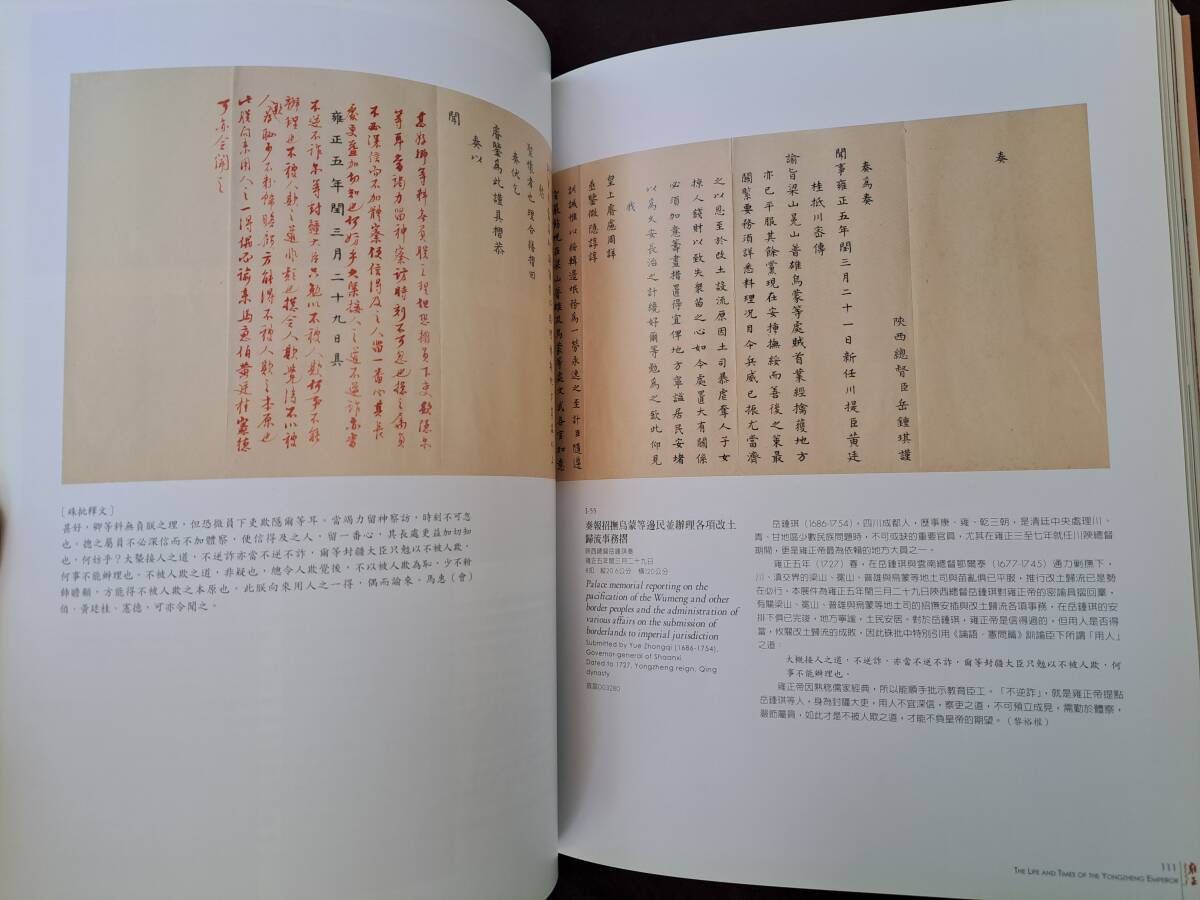 奏
陝西總督臣岳鍾琪謹
奏為奏
聞事雍正五年閏三月二十一日新任川提臣黃廷
桂抵川密傳
諭旨梁山冕山普雄烏蒙等處賊首業經擒獲地方
亦已平服其餘黨現在安揷撫綏而善後之策最
關緊要務須詳悉料理況目今兵威已振尤當濟
之以恩至於改土設流原因土司暴虐奪人子女
掠人錢財以致失衆苗之心如今處置大有關係
必須加意籌畫措置得宜俾地方寧謐居民安堵
以為久安長治之計繞好爾等勉為之欽此仰見
我
皇上睿慮周詳
垂鑒微隱諄諄
訓誡惟以綏輯邊氓務為一勞永逸之至計臣隨遵
聖懷者也理合繕摺回
奏伏乞
睿鑒為此謹具摺恭
奏以
聞
甚好卿等料無負朕之理但恐微員下吏欺隱尔
等耳當竭力留神察訪時刻不可忽也德之屬員
不必深信而不加體察便信得及之人留一番心其長
處更益加切知也何妨乎大槩接人之道不逆詐亦當
雍正五年閏三月二十九日具
不逆不詐尔等封疆大臣只勉以不被人欺何事不能
辦理也不被人欺之道非疑也總令人欺覺後不以被
人欺為恥少不粉飾瞻顧方能得不被人欺之本原也
此朕向來用人之一得偶而論來馬惠伯黃廷桂憲德
可亦令聞之
［硃批釋文］
甚好，卿等料無負朕之理，但恐微員下吏欺隱爾等耳。當竭力留神察訪，時刻不可忽
也。德之屬員不必深信而不加體察，便信得及之人，留一番心，其長處更益加切知
也，何妨乎？大槩接人之道，不逆詐亦當不逆不詐，爾等封疆大臣只勉以不被人欺，
何事不能辦理也。不被人欺之道，非疑也，總令人欺覺後，不以被人欺為恥，少不粉
飾瞻顧，方能得不被人欺之本原也。此朕向來用人之一得，偶而論來。馬惠（會）
伯、黃廷桂、憲德，可亦令聞之。
I-55
奏報招撫烏蒙等邊民並辦理各項改土
歸流事務摺
陝西總督岳鍾琪奏
雍正五年閏三月二十九日
Palace memorial reporting on the
pacification of the Wumeng and other
border peoples and the administration of
various affairs on the submission of
borderlands to imperial jurisdiction
Submitted by Yue Zhongqi (1686-1754),
Governor-general of Shaanxi
Dated to 1727, Yongzheng reign, Qing
dynasty
故宮003280
岳鍾琪（1686-1754），四川成都人，歷事康、雍、乾三朝，是清廷中央處理川、
青、甘地區少數民族問題時，不可或缺的重要官員，尤其在雍正三至七年就任川陝總督
期間，更是雍正帝最為依賴的地方大員之一。
雍正五年（1727）春，在岳鍾琪與雲南總督鄂爾泰（1677-1745）通力剿撫下，
川、滇交界的梁山、冕山、普雄與烏蒙等地土司與苗亂俱已平服，推行改土歸流已是勢
在必行。本展件為雍正五年閏三月二十九日陝西總督岳鍾琪對雍正帝的密諭具摺回稟，
有關梁山、冕山、普雄與烏蒙等地土司的招撫安插與改土歸流各項事務，在岳鍾琪的安
排下俱已完竣，地方寧謐，土民安居。對於岳鍾琪，雍正帝是信得過的，但用人是否得
當，攸關改土歸流的成敗，因此硃批中特別引用《論語．憲問篇》訓諭臣下所謂「用人」
之道：
大概接人之道，不逆詐，亦當不逆不詐，爾等封疆大臣只勉以不被人欺，何
事不能辦理也。
雍正帝因熟稔儒家經典，所以能順手批示教育臣工。「不逆詐」，就是雍正帝提點
岳鍾琪等人，身為封疆大吏，用人不宜深信，察吏之道，不可預立成見，需勤於體察，
嚴飭屬員，如此才是不被人欺之道，才能不負皇帝的期望。（黎裕權）
111
THE LIFE AND TIMES OF THE YONGZHENG EMPEROR
雍正